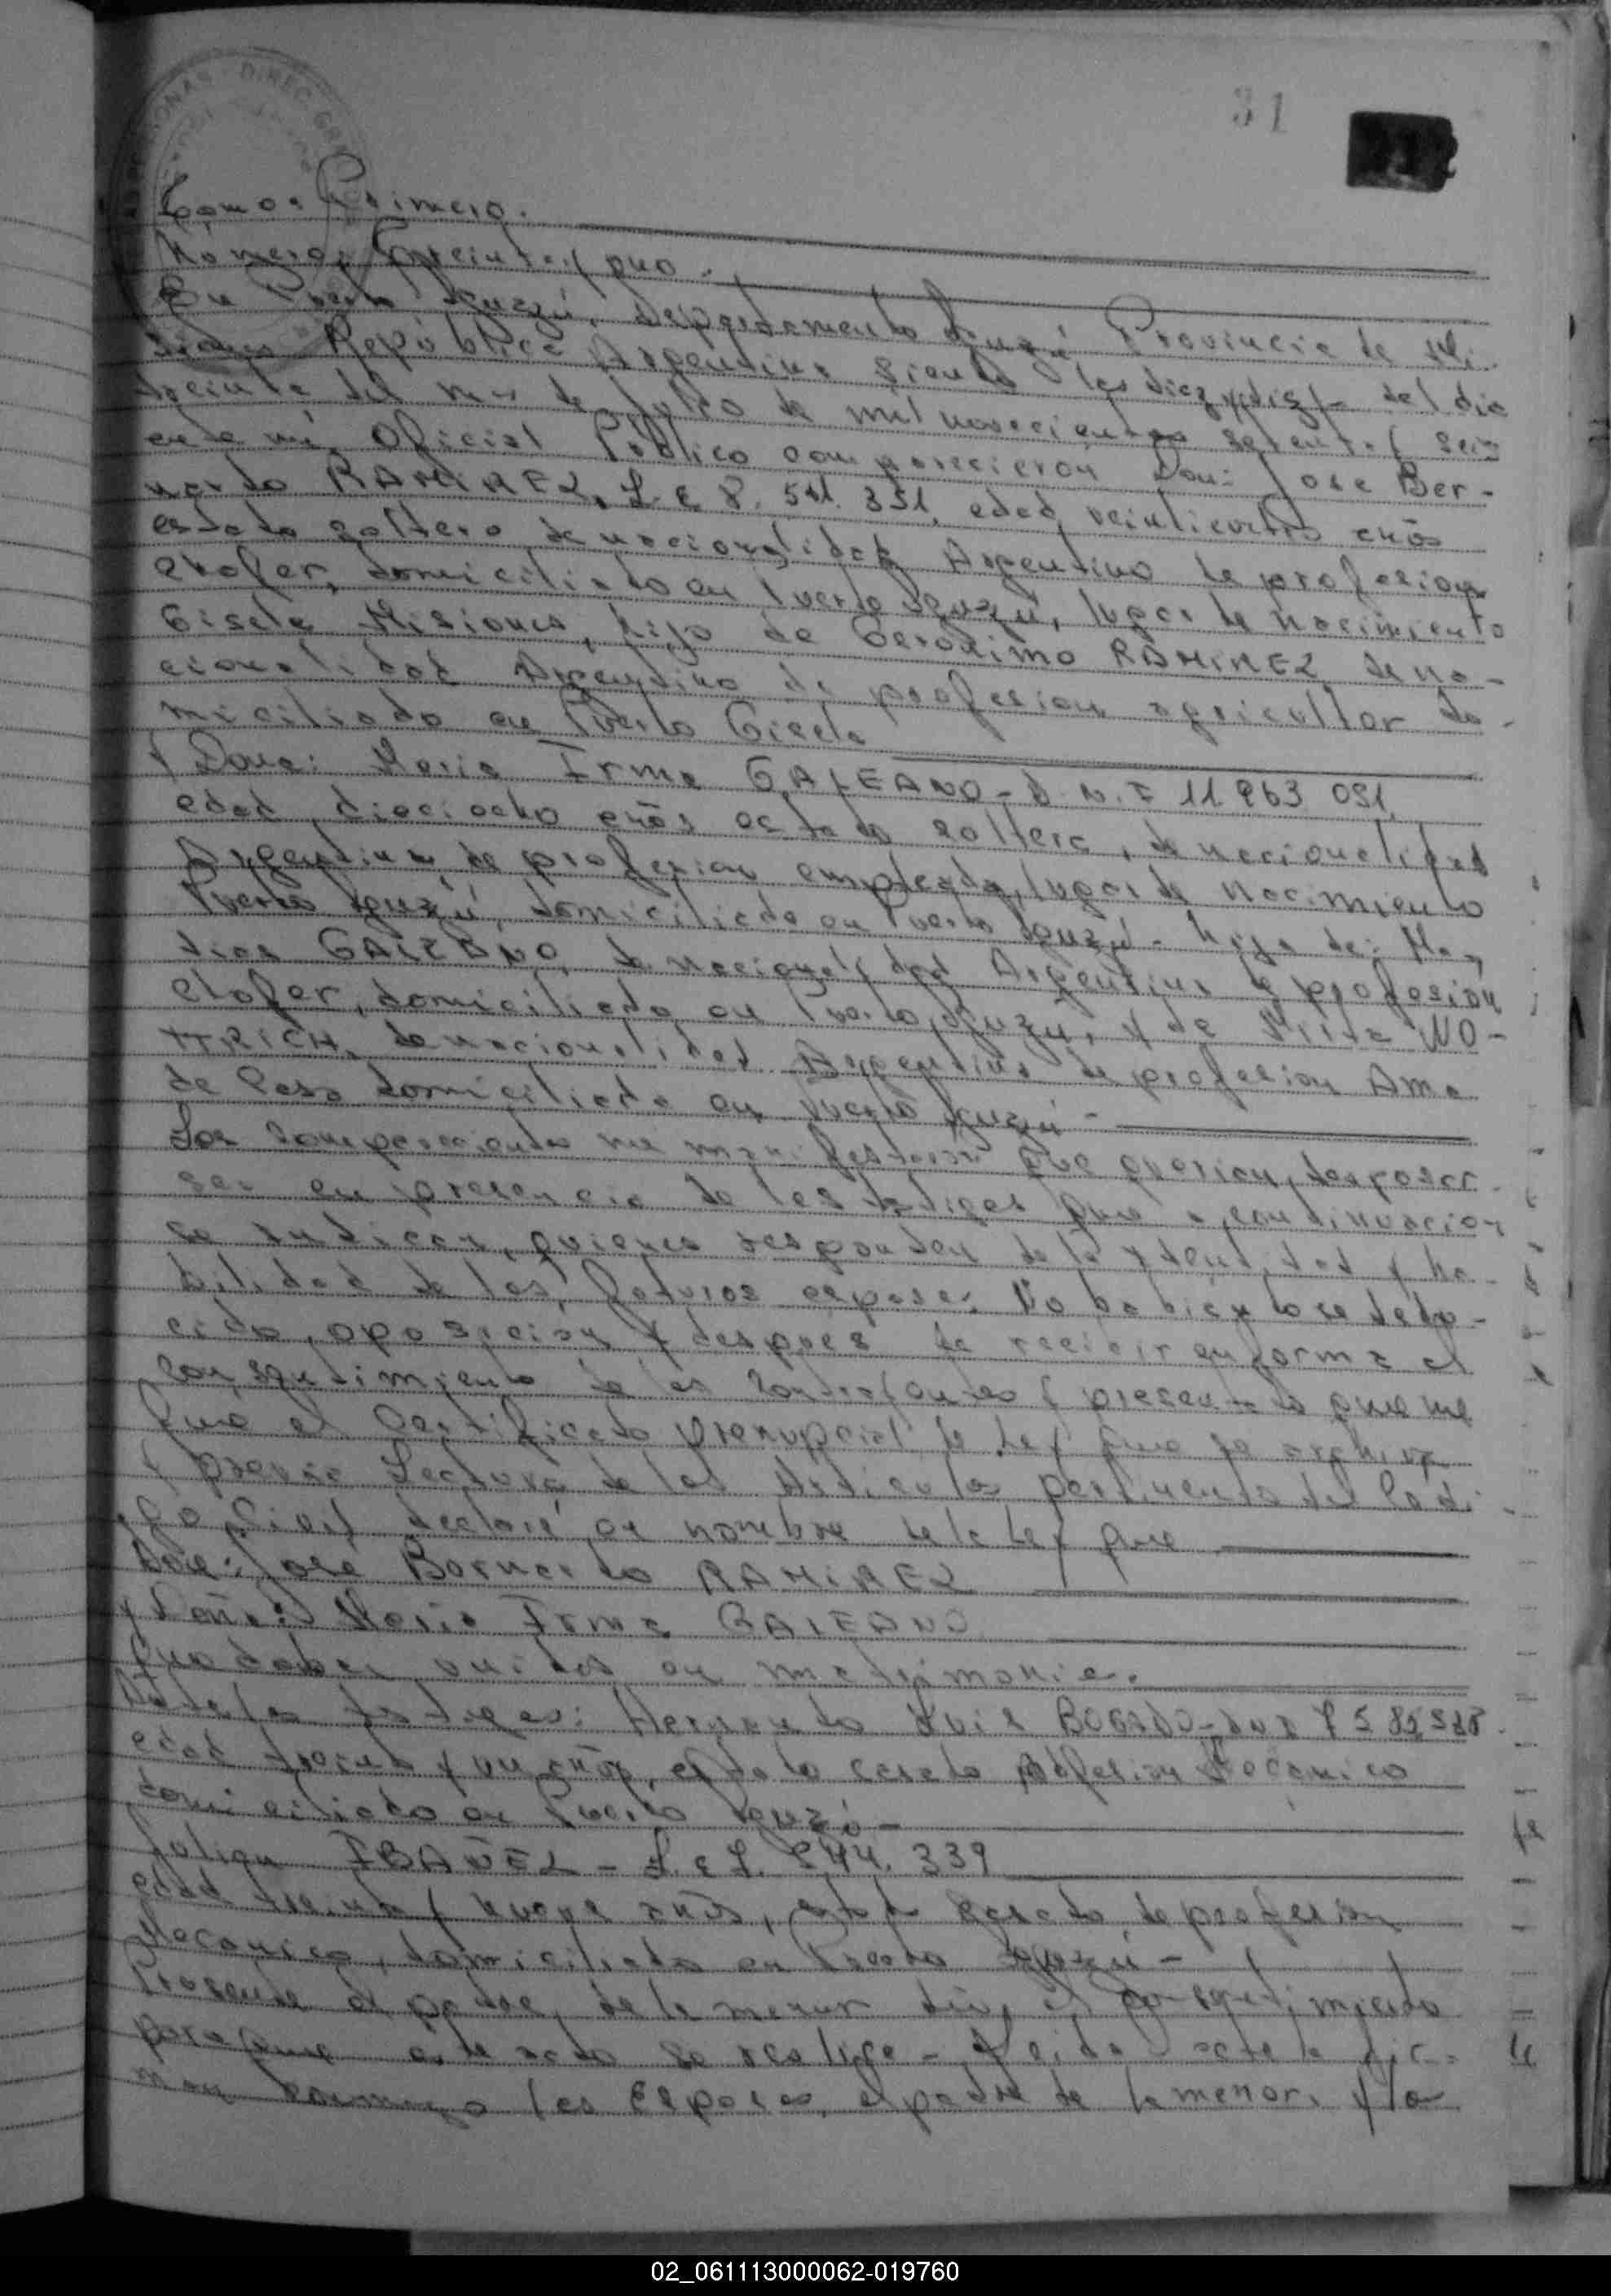 31
Tomo: Primero.
Número: Treinta y uno.
En Puerto Iguazú, Departamento Iguazú Provincia de Mi-
siones República Argentina siendo las diez y diez del dia
treinta del mes de Julio de mil novecientos setenta y seis
ante mí Oficial Público comparecieron Don: Jose Ber-
nardo RAMIREZ, L E 8. 541. 351, edad, veinticuatro años
estado soltero de nacionalidad Argentino de profesion
chofer, domiciliado en Puerto Iguazú, lugar de Nacimiento
Gisela Misiones, hijo de Geronimo RAMIREZ de na-
cionalidad Argentino de profesion agricultor do-
miciliado en Puerto Gisela
y Dona: Maria Irma GALEANO - D. N. I 11 963 051,
edad, dieciocho años estado soltera, de nacionalidad
Argentina de profesion empleada, lugar de Nacimiento
Puerto Iguazú, domiciliada en Puerto Iguazú - hija de: Ma-
tias GALEANO, de nacionalidad Argentina de profesion
chofer, domiciliado en Puerto Iguazu, y de Mirta WO-
TTRICH, de nacionalidad Argentina de profesion Ama
de Casa domiciliada en Puerto Iguazú -
Los Comparecientes me manifestaron que querian, desposar-
se en presencia de los testigos que a continuacion
se indican, quienes responden de la ydentidad y ha-
bilidad de los, futuros esposos. No habiendose dedu-
cido, oposicion y despues de recibir en forma el
consentimiento de los contrayentes y presentado que me
fue el Certificado Prenupcial de Ley que se archiva
y previa Lectura de los Articulos pertinentes del Codi-
go Civil declaré en nombre de la Ley que
Don: Jose Bernardo RAMIREZ
y Doña: Maria Irma GALEANO
quedaban unidos en matrimonio.
testigos: Hernando Luis BOGADO -
edad treinta y un años, estado casado profesion Mecanico
domiciliado en Puerto Iguazú -
Julian IBAÑEZ - L E 7. 544. 339
edad treinta y nueve años, estado casado, de profesion
Mecanico, domiciliado en Puerto Iguazú - y
Presente el padre, de la menor dio, el consentimiento
para que este acto se realice - Leida acta la fir-
man conmigo los Esposos, el padre de la menor, y los
02_061113000062-019760